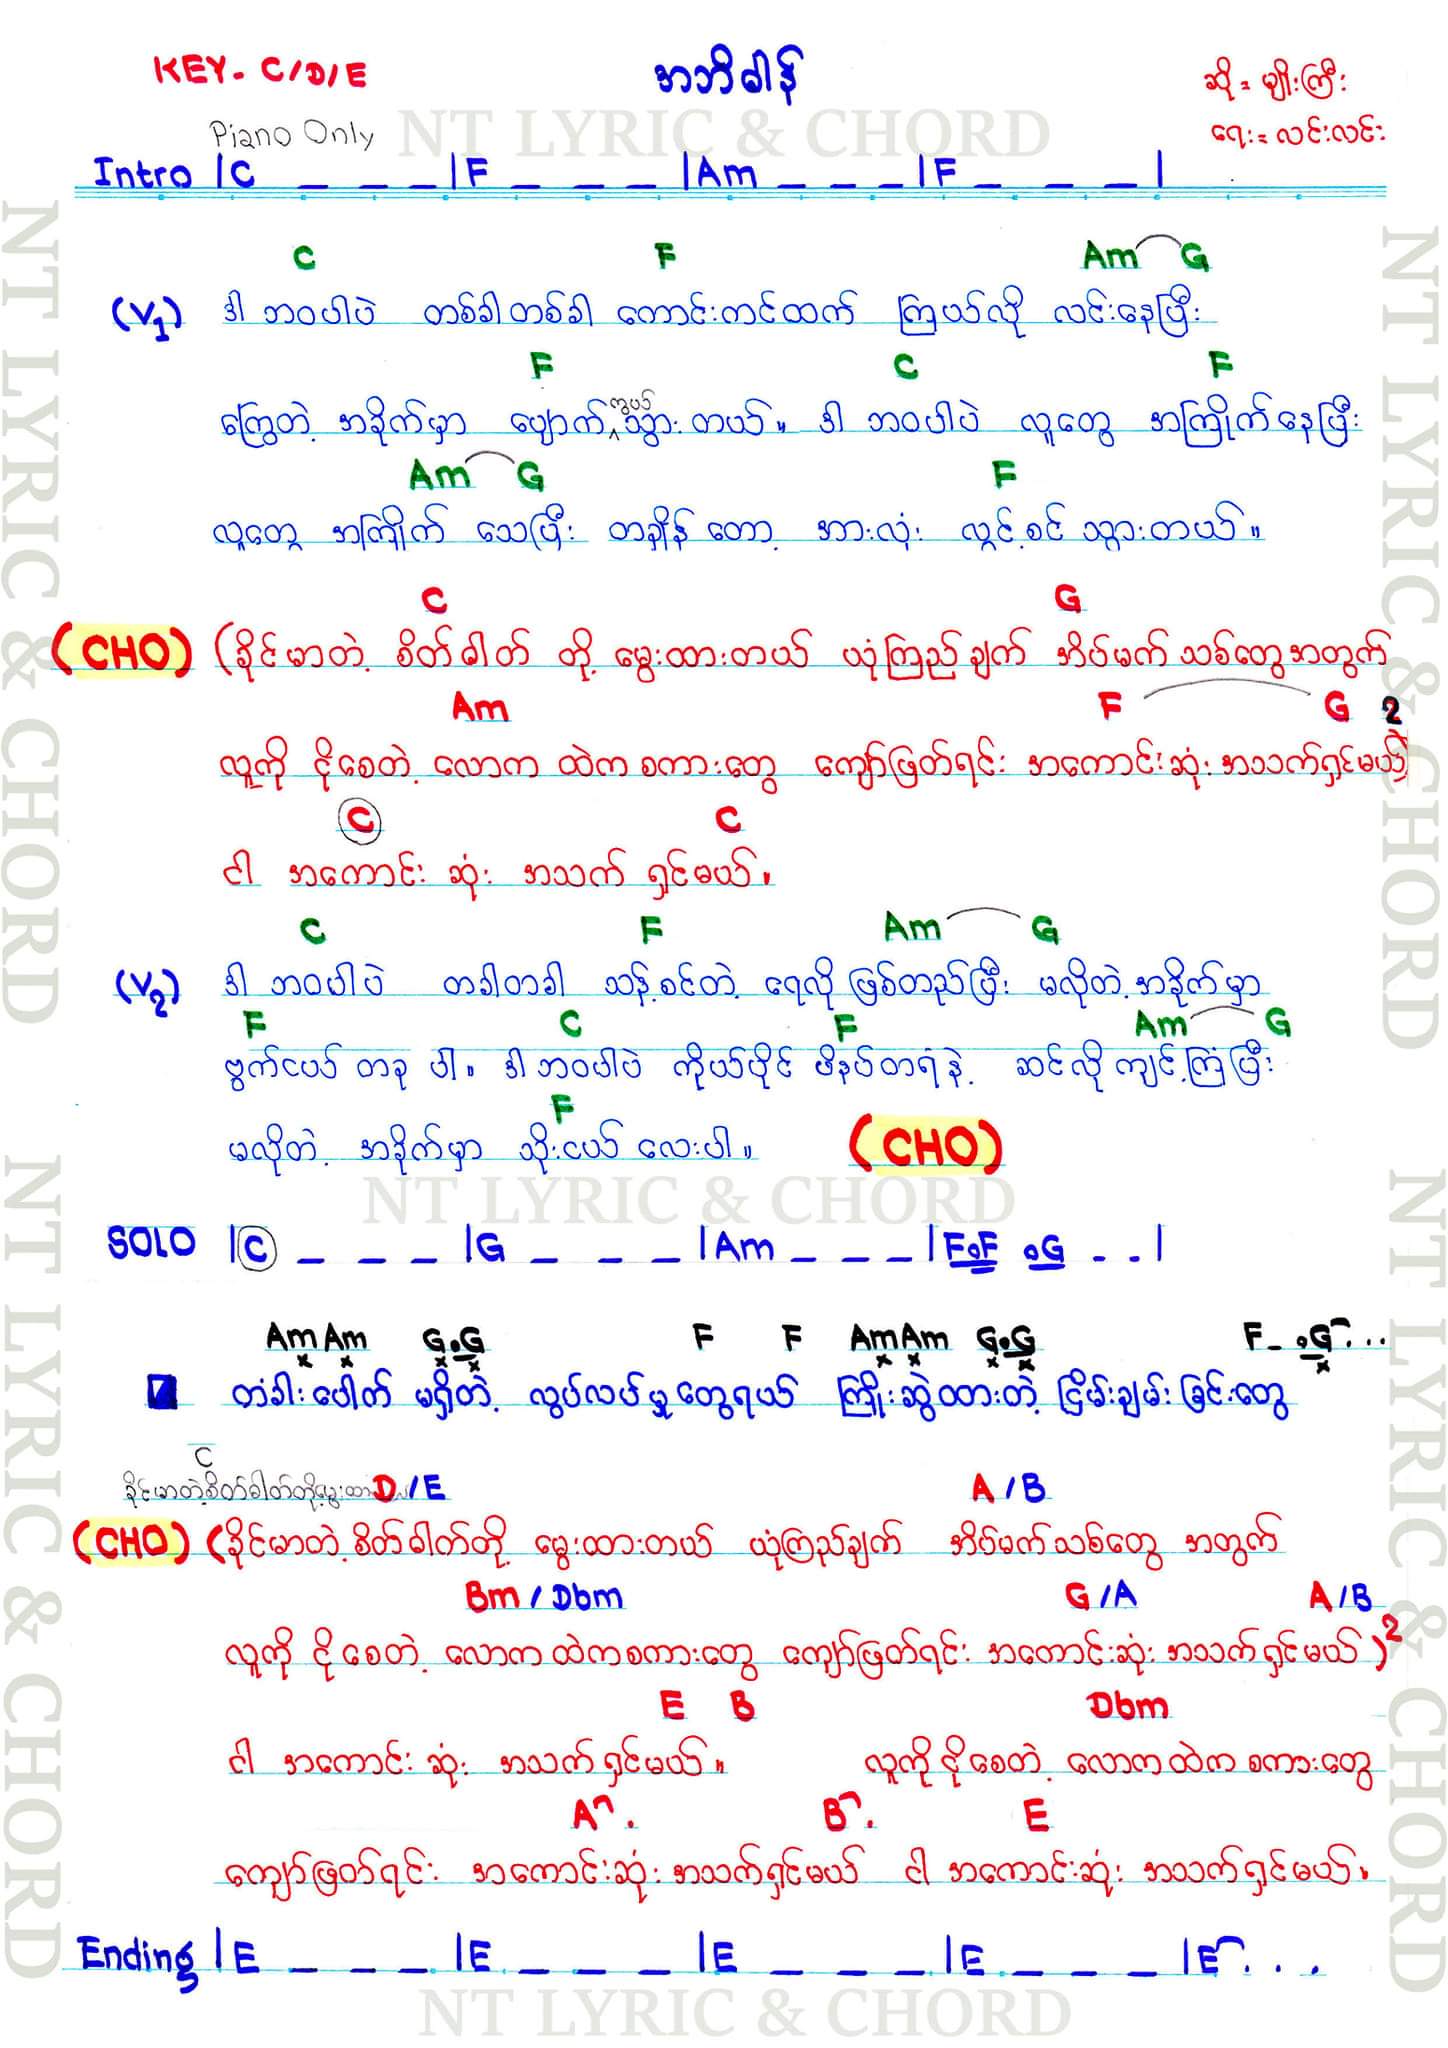 KEY- C/D/E
အဘိဓါန်
ဆို = မျိုးကြီး
ရေး = လင်းလင်း
Piano Only
NT LYRIC & CHORD
Intro |C _ _ _ |F _ _ _ |Am _ _ _ |F _ _ _ |
C F Am G
(V1) ဒါ ဘဝပါပဲ တစ်ခါတစ်ခါ ကောင်းကင်ထက် ကြယ်လို လင်းနေပြီး
F C F
ကြွေတဲ့ အခိုက်မှာ ပျောက် ကွယ် သွားတယ်။ ဒါ ဘဝပါပဲ လူတွေ အကြိုက်နေပြီး
Am G F
လူတွေ အကြိုက် သေပြီး တချိန်တော့ အားလုံး လွင့်စင် သွားတယ်။
C G
(CHO) (ခိုင်မာတဲ့ စိတ်ဓါတ် တို့ မွေးထားတယ် ယုံကြည်ချက် အိပ်မက်သစ်တွေအတွက်
Am F G 2
လူကို ငိုစေတဲ့ လောက ထဲက စကားတွေ ကျော်ဖြတ်ရင်း အကောင်းဆုံး အသက်ရှင်မယ်)
C C
ငါ အကောင်း ဆုံး အသက် ရှင်မယ်။
C F Am G
(V2) ဒါ ဘဝပါပဲ တခါတခါ သန့်စင်တဲ့ ရေလို ဖြစ်တည်ပြီး မလိုတဲ့ အခိုက်မှာ
F C F Am G
ဗွက်ငယ် တခု ပါ။ ဒါ ဘဝပါပဲ ကိုယ်ပိုင် ဖိနပ်တရံနဲ့ ဆင်လို ကျင့်ကြံပြီး
F
မလိုတဲ့ အခိုက်မှာ သိုးငယ် လေးပါ။ (CHO)
NT LYRIC & CHORD
SOLO |C _ _ _ |G _ _ _ |Am _ _ _ |F.F .G - - |
Am Am G.G F F Am Am G.G F - .G ...
တံခါးပေါက် မရှိတဲ့ လွပ်လပ်မှုတွေရယ် ကြိုးဆွဲထားတဲ့ ငြိမ်းချမ်းခြင်းတွေ
C
ခိုင်မာတဲ့စိတ်ဓါတ်တို့မွေးထား D/E A/B
(CHO) (ခိုင်မာတဲ့ စိတ်ဓါတ်တို့ မွေးထားတယ် ယုံကြည်ချက် အိပ်မက်သစ်တွေ အတွက်
Bm/Dbm G/A A/B
လူကို ငိုစေတဲ့ လောကထဲကစကားတွေ ကျော်ဖြတ်ရင်း အကောင်းဆုံး အသက်ရှင်မယ်)2
E B Dbm
ငါ အကောင်းဆုံး အသက်ရှင်မယ်။ လူကိုငိုစေတဲ့ လောကထဲက စကားတွေ
A . B . E
ကျော်ဖြတ်ရင်း အကောင်းဆုံး အသက်ရှင်မယ် ငါ အကောင်းဆုံး အသက်ရှင်မယ်။
Ending |E _ _ _ |E _ _ _ |E _ _ _ |E _ _ _ |E ...
NT LYRIC & CHORD
NT LYRIC & CHORD
NT LYRIC & CHORD
NT LYRIC & CHORD
NT LYRIC & CHORD